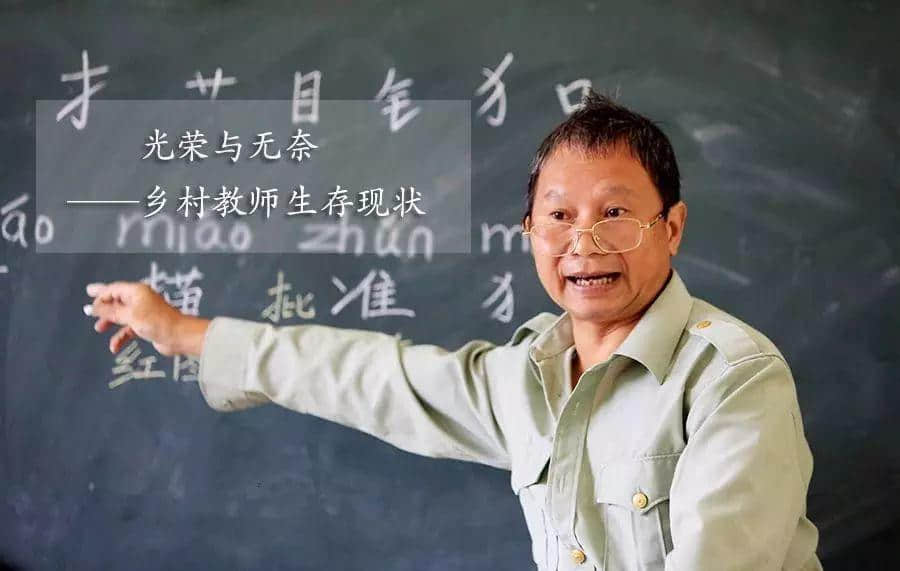 扌 艹 目 钅 犭 口
光荣与无奈
——乡村教师生存现状
áo miáo zhǔn m
横 批 准 犭
红图